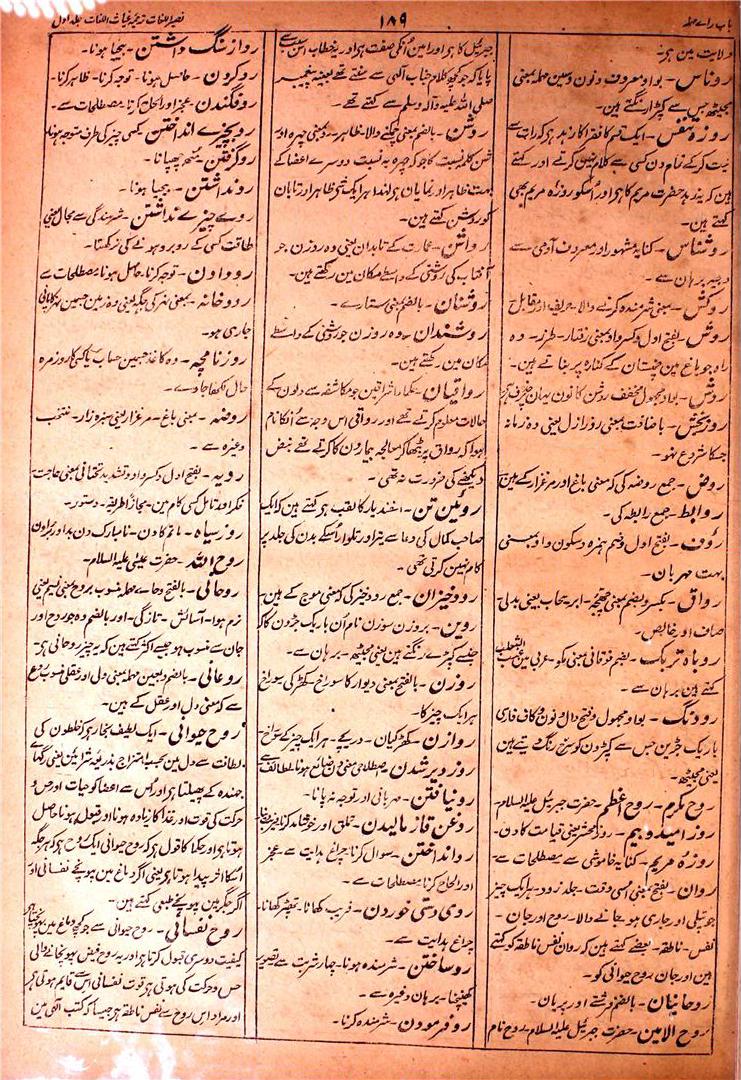 باب راے مہملہ
۱۸۹
نصیر اللغات ترجمہ غیاث اللغات جلد اول
ولایت مین ہی۔
روناس۔ بواو معروف و نون و سین مہملہ بمعنی
مجیٹھ جس سے کپڑا رنگتے ہین۔
روزہ نفس۔ ایک قسم کا فقرا کا زہد ہو کہ رات سے
نیت کرکے تمام دن کسی سے کلام نہین کرتے اور کہتے
ہین کہ یہ زہد حضرت مریم کا ہی اور اسکو روزہ مریم بھی
کہتے ہین۔
روشناس۔ کنایہ مشہور اور معروف آدمی سے
برہان سے۔
روکش۔ بمعنی شرمندہ کرنے والا۔ حریف اور مقابل
روش۔ بفتح اول و کسر واو بمعنی رفتار۔ طرز۔ وہ
راہ جو باغ مین چمنستان کے کنارہ پر بناتے ہین۔
روش۔ بواو مجہول مخفف روشن کا نون
روز بخش۔ باضافت بمعنی روز ازل یعنی وہ زمانہ
جسکا شروع نہو۔
روض۔ جمع روضہ کی کہ بمعنی باغ اور مرغزار کے ہین
روابط۔ جمع رابطہ کی۔
رؤف۔ بفتح اول و ضم ہمزہ و سکون واو بمعنی
بہت مہربان۔
رواق۔ بکسر و بضم بمعنی چھجہ۔ ابر سحاب یعنی بدلی۔
صاف اور خالص۔
روباہ تربک۔ بضم فوقانی بمعنی مکو۔ عربی مین عنب الثعلب
کہتے ہین برہان سے۔
رودنگ۔ بواو مجہول و فتح دال و نون و کاف فارسی
باریک جڑین جس سے کپڑون کو سرخ رنگ دیتے ہین
یعنی مجیٹھ۔
روح مکرم۔ روح اعظم۔ حضرت جبرئیل علیہ السلام۔
روز امید و بیم۔ روز محشر یعنی قیامت کا دن۔
روزہ مریم۔ کنایہ خاموشی سے مصطلحات سے۔
روان۔ بفتح بمعنی اسی وقت۔ جلد زود۔ ہر ایک چیز
جو پتلی اور جاری ہو۔ جانے والا۔ روح اور جان۔
نفس۔ ناطقہ۔ بعضے کہتے ہین کہ روان نفس ناطقہ کو کہتے
ہین اور جان روح حیوانی کو۔
روحانیان۔ بالضم فرشتے اور پریان۔
روح الامین۔ حضرت جبرئیل علیہ السلام۔ روح نام
جبرئیل کا ہی اور امین انکی صفت ہی اور یہ خطاب اس سبب سے
پایا کہ جو کچھ کلام جناب الٰہی سے سنتے تھے بعینہ پیغمبر
صلی اللہ علیہ و آلہ وسلم سے کہتے تھے۔
روشن۔ بالضم بمعنی چمکنے والا۔ ظاہر۔ رو بمعنی چہرہ اور
شن کلمہ نسبت کا جو کہ چہرہ بہ نسبت دوسرے اعضا کے
بہت ظاہر اور نمایان ہی لہذا ہر ایک شی ظاہر اور تابان
کو روشن کہتے ہین۔
روشن۔ عمارت کے تابدان یعنی وہ روزن جو
آفتاب کی روشنی کے واسطے مکان مین رکھتے ہین۔
روشنان۔ بالضم بمعنی ستارے۔
روشندان۔ وہ روزن جو روشنی کے واسطے
مکان مین رکھتے ہین۔
رواقیان۔ حکماے اشراقین جو مکاشفہ سے دلون کے
حالات معلوم کرتے تھے اور رواقی اس وجہ سے انکا نام
ہوا کہ رواق پر بیٹھکر معالجہ بیمارون کا کرتے تھے نبض
دیکھنے کی ضرورت نہ تھی۔
روئین تن۔ اسفندیار کا لقب ہی کہتے ہین کہ ایک
صاحب کمال کی دعا سے تیر اور تلوار اسکے بدن کی جلد پر
کام نہین کرتی تھی۔
رودخیزان۔ جمع رود خیز کی کہ بمعنی موج کے ہین۔
روین۔ بروزن سوزن نام اُن باریک جڑون کا کہ
جنسے کپڑے رنگتے ہین یعنی مجیٹھ۔ برہان سے۔
روزن۔ بالفتح بمعنی دیوار کا سوراخ۔ کھڑکی۔ سوراخ
ہر ایک چیز کا۔
روازن۔ کھڑکیان۔ دریچے۔ ہر ایک چیز کے سوراخ
روز دیر شدن۔ ضائع ہونا۔ لطائف سے
رو نیافتن۔ مہربانی اور توجہ نہ پانا۔
روغن قاز مالیدن۔ تملق اور خوشامد کرنا
رو انداختن۔ سوال کرنا۔ چراغ ہدایت سے عجز
اور الحاح کرنا مصطلحات سے۔
روی دستی خوردن۔ فریب کھانا۔ تھپڑ کھانا۔
چراغ ہدایت سے۔
رو ساختن۔ شرمندہ ہونا۔ بہار شربت سے تصویر
کھینچنا۔ برہان وغیرہ سے۔
رو فرمودن۔ شرمندہ کرنا۔
رو از سنگ داشتن۔ بیحیا ہونا۔
رو کردن۔ حاصل ہونا۔ توجہ کرنا۔ ظاہر کرنا۔
رو فگندن۔ عجز اور الحاح کرنا۔ مصطلحات سے۔
رو بچیزے انداختن۔ کسی چیز کی طرف متوجہ ہونا
رو گرفتن۔ منھ چھپانا۔
رو نداشتن۔ بیحیا ہونا۔
روے چیزے نداشتن۔ شرمندگی سے مجال یعنی
طاقت کسی کے روبرو ہونے کی نرکھنا۔
رو دادن۔ توجہ کرنا۔ حاصل ہونا۔ مصطلحات سے
رودخانہ۔ بمعنی نہر کی جگہ یعنی وہ زمین جسمین نہر کا پانی
جاری ہو۔
روزنامچہ۔ وہ کاغذ جسمین حساب یا کسی کا روز مرہ
حال لکھا جاوے۔
روضہ۔ بمعنی باغ۔ مرغزار یعنی سبزہ زار۔ منتخب
وغیرہ سے۔
رویہ۔ بفتح اول و کسر واو و تشدید تحتانی بمعنی حاجت۔
فکر اور تامل کسی کام مین۔ مجازاً طریقہ۔ دستور۔
روز سیاہ۔ ماتم کا دن۔ نامبارک دن
روح اللہ۔ حضرت عیسیٰ علیہ السلام۔
روحانی۔ بالفتح و حاے مہملہ منسوب بروح بمعنی نسیم یعنی
نرم ہوا۔ آسائش۔ تازگی۔ اور بالضم وہ جو روح اور
جان سے منسوب ہو جیسے اکثر کہتے ہین کہ یہ چیز روحانی ہے۔
روعانی۔ بالضم و عین مہملہ بمعنی دلی اور عقلی منسوب روع
سے کہ بمعنی دل اور عقل کے ہین۔
روح حیوانی۔ ایک لطیف بخار ہو کہ خلطون کی
لطافت سے دل مین بحسب امتزاج بذریعہ شرائین یعنی رگہاے
جہندہ کے پھیلتا ہی اور اس سے اعضا کو حیات اور حس و
حرکت کی قوت اور غذا کا زیادہ ہونا اور قبول ہونا حاصل
ہوتا ہی اور حکما کا قول ہو کہ روح حیوانی ایک روح ہو کہ ہر جگہ
اسکا اثر پیدا ہوتا ہی یعنی اگر دماغ مین پہونچے نفسانی اور
اگر جگر مین پہونچے طبعی کہتے ہین۔
روح نفسانی۔ روح حیوانی سے جو کچھ دماغ مین پہونچتا ہی
کیفیت دوسری قبول کرتا ہی اور یہ روح فیض پہونچانے والی
حس و حرکت کی ہوتی ہی قوت نفسانی اس سے قایم ہوتی ہی
اور مراد اس روح سے نفس ناطقہ ہو جیسا کہ کتب الٰہی مین